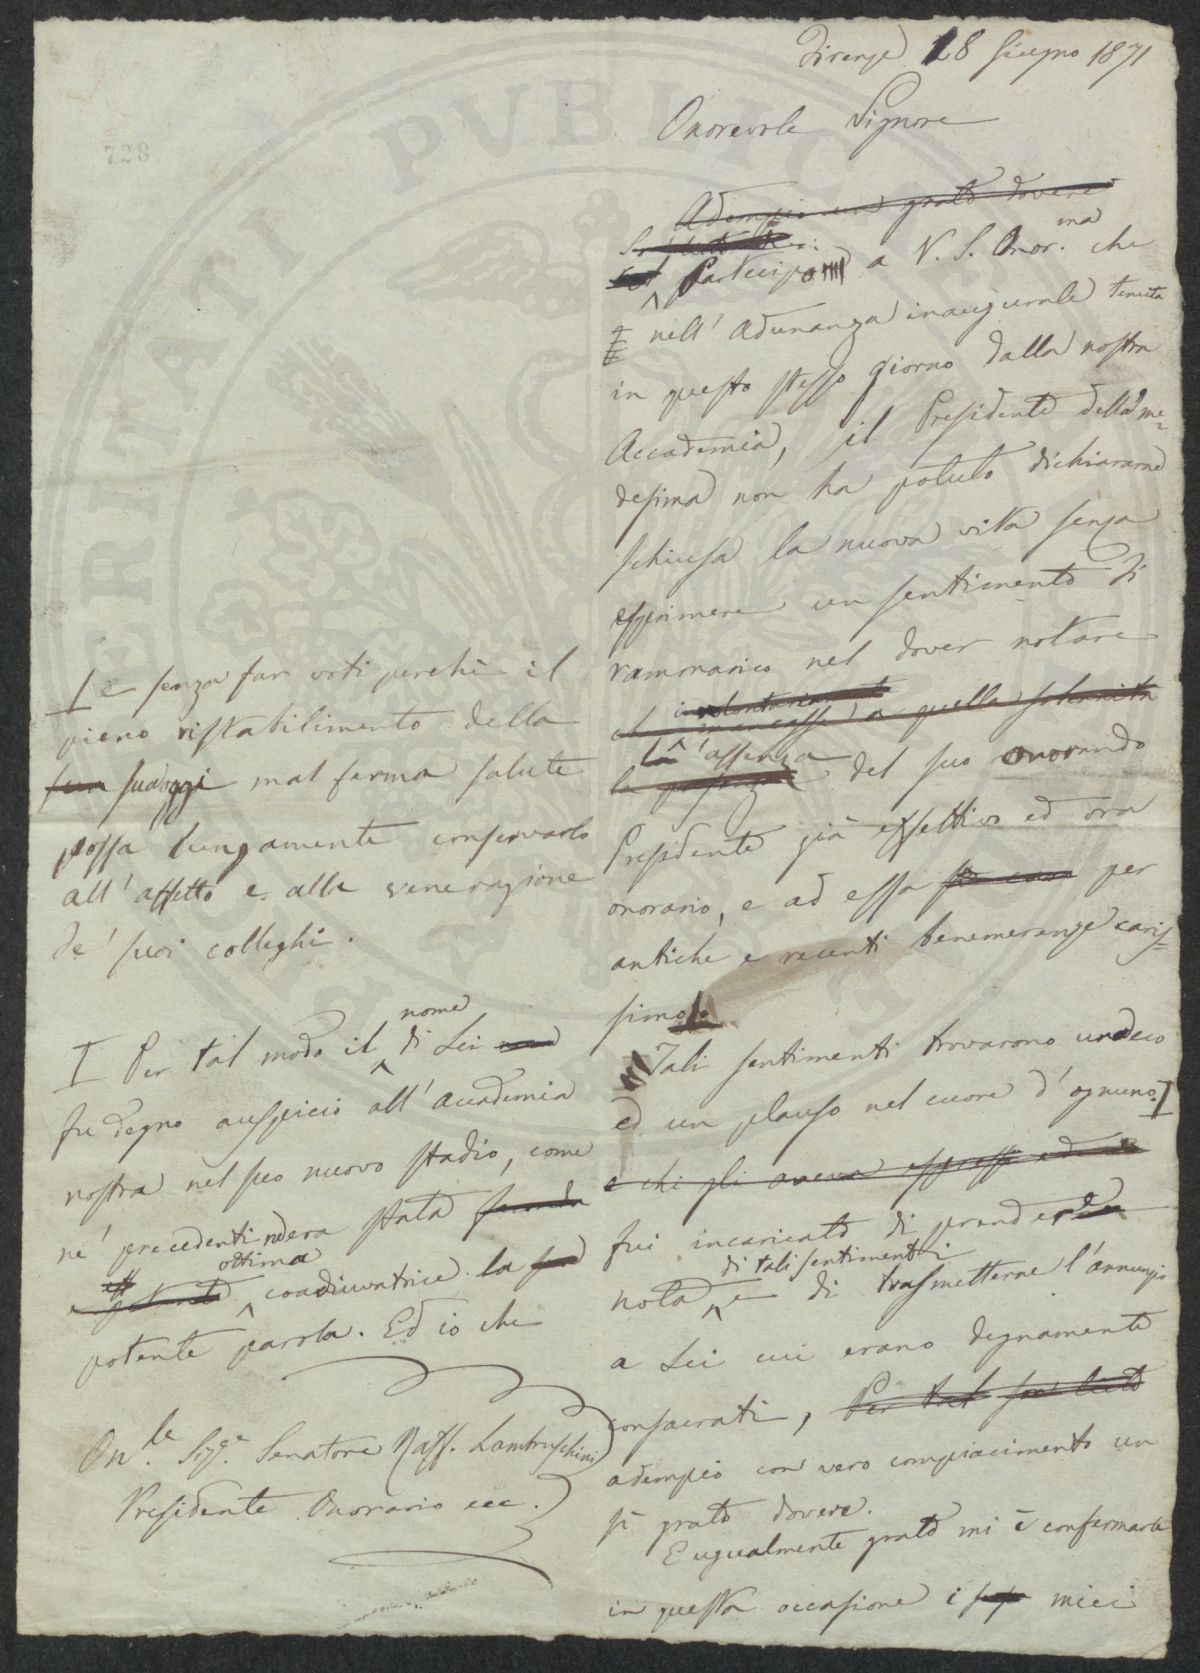 Firenze 18 Giugno 1871
Onorevole Signore
Adempio un grato dovere
Partecipo a V. S. Onor.ma che
nell' adunanza inaugurale tenuta
in questo stesso giorno dalla nostra
Accademia, il Presidente della me=
desima non ha potuto dichiararne
schiusa la nuova vita senza
esprimere un sentimento di
rammarico nel dover notare
involontariamente
mancasse a quella solennità
la assenza
la presenza del suo onorando
Presidente già effettivo ed ora
onorario, e ad essa per
antiche e recenti benemerenze caris=
simo
Tali sentimenti trovarono un eco
ed un plauso nel cuore d' ognuno. I
e chi gli aveva espressi ed
fui incaricato di prendere
di tali sentimenti
nota e di trasmetterne l'annunzio
a Lei cui erano degnamente
consacrati, Per tal
adempio con vero compiacimento un
sì grato dovere.
Egualmente grato mi è confermarle
in questa occasione i miei
I e senza far voti perchè il
pieno ristabilimento della
sua oggi mal ferma salute
possa lungamente conservarlo
all' affetto e alla venerazione
de' suoi colleghi.
nome
I Per tal modo il di Lei
fu degno auspicio all' Accademia
nostra nel suo nuovo stadio, come
ne' precedenti n'era stata
ottima
coadiuvatrice la
potente parola. Ed io che
On.le Sig.e Senatore Raff. Lambruschini
Presidente Onorario ecc.
728
PVBLICAE